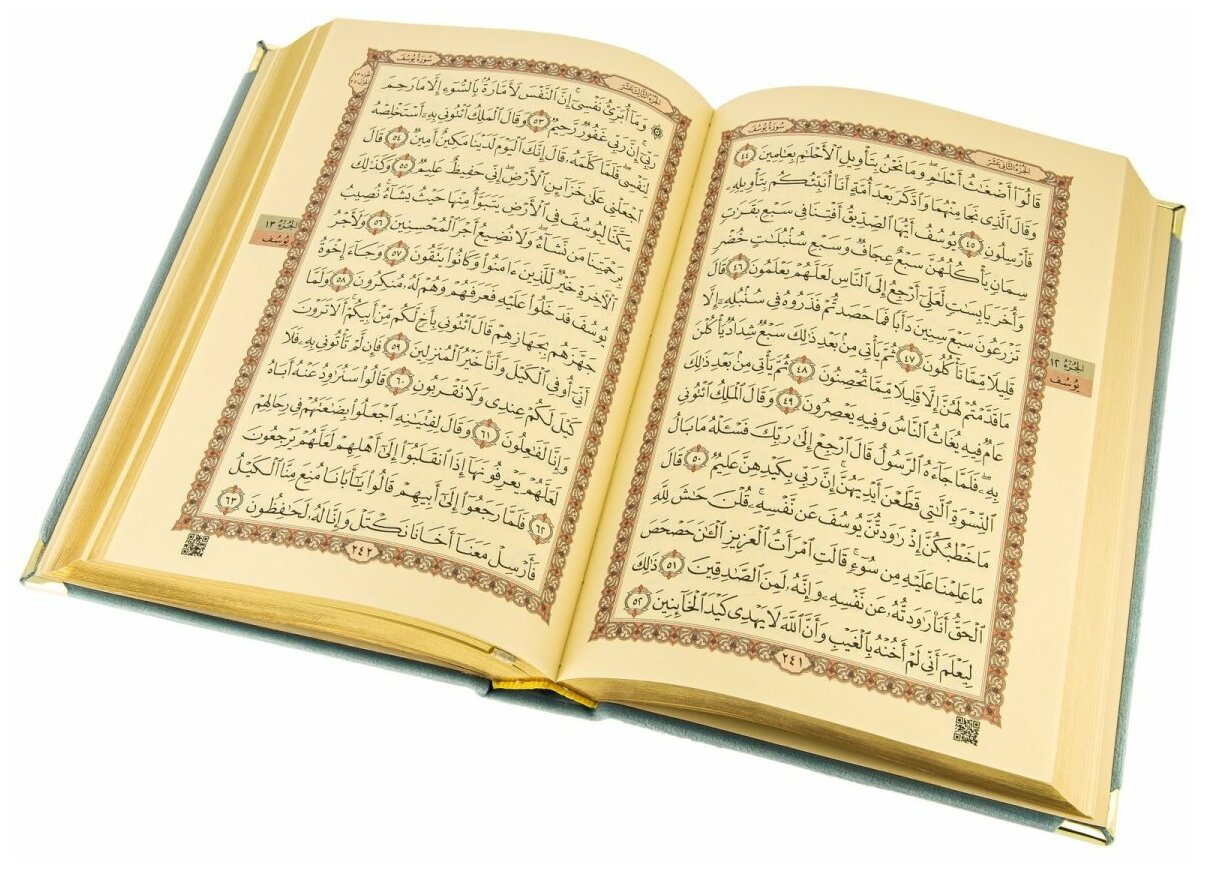 سُورَةُ يُوسُفَ
الجُزْءُ الثَّانِي عَشَرَ
قَالُوٓا۟ أَضْغَٰثُ أَحْلَٰمٍ ۖ وَمَا نَحْنُ بِتَأْوِيلِ ٱلْأَحْلَٰمِ بِعَٰلِمِينَ ٤٤
وَقَالَ ٱلَّذِى نَجَا مِنْهُمَا وَٱدَّكَرَ بَعْدَ أُمَّةٍ أَنَا۠ أُنَبِّئُكُم بِتَأْوِيلِهِۦ
فَأَرْسِلُونِ ٤٥ يُوسُفُ أَيُّهَا ٱلصِّدِّيقُ أَفْتِنَا فِى سَبْعِ بَقَرَٰتٍ
سِمَانٍ يَأْكُلُهُنَّ سَبْعٌ عِجَافٌ وَسَبْعِ سُنۢبُلَٰتٍ خُضْرٍ
وَأُخَرَ يَابِسَٰتٍ لَّعَلِّىٓ أَرْجِعُ إِلَى ٱلنَّاسِ لَعَلَّهُمْ يَعْلَمُونَ ٤٦ قَالَ
تَزْرَعُونَ سَبْعَ سِنِينَ دَأَبًا فَمَا حَصَدتُّمْ فَذَرُوهُ فِى سُنۢبُلِهِۦٓ إِلَّا
قَلِيلًا مِّمَّا تَأْكُلُونَ ٤٧ ثُمَّ يَأْتِى مِنۢ بَعْدِ ذَٰلِكَ سَبْعٌ شِدَادٌ يَأْكُلْنَ
مَا قَدَّمْتُمْ لَهُنَّ إِلَّا قَلِيلًا مِّمَّا تُحْصِنُونَ ٤٨ ثُمَّ يَأْتِى مِنۢ بَعْدِ ذَٰلِكَ
عَامٌ فِيهِ يُغَاثُ ٱلنَّاسُ وَفِيهِ يَعْصِرُونَ ٤٩ وَقَالَ ٱلْمَلِكُ ٱئْتُونِى
بِهِۦ ۖ فَلَمَّا جَآءَهُ ٱلرَّسُولُ قَالَ ٱرْجِعْ إِلَىٰ رَبِّكَ فَسْـَٔلْهُ مَا بَالُ
ٱلنِّسْوَةِ ٱلَّٰتِى قَطَّعْنَ أَيْدِيَهُنَّ ۚ إِنَّ رَبِّى بِكَيْدِهِنَّ عَلِيمٌ ٥٠ قَالَ
مَا خَطْبُكُنَّ إِذْ رَٰوَدتُّنَّ يُوسُفَ عَن نَّفْسِهِۦ ۚ قُلْنَ حَٰشَ لِلَّهِ
مَا عَلِمْنَا عَلَيْهِ مِن سُوٓءٍ ۚ قَالَتِ ٱمْرَأَتُ ٱلْعَزِيزِ ٱلْـَٰٔنَ حَصْحَصَ
ٱلْحَقُّ أَنَا۠ رَٰوَدتُّهُۥ عَن نَّفْسِهِۦ وَإِنَّهُۥ لَمِنَ ٱلصَّٰدِقِينَ ٥١ ذَٰلِكَ
لِيَعْلَمَ أَنِّى لَمْ أَخُنْهُ بِٱلْغَيْبِ وَأَنَّ ٱللَّهَ لَا يَهْدِى كَيْدَ ٱلْخَآئِنِينَ ٥٢
٢٤١
الجُزْءُ ١٢
يُوسُف
سُورَةُ يُوسُفَ
الجُزْءُ الثَّالِثَ عَشَرَ
وَمَآ أُبَرِّئُ نَفْسِىٓ ۚ إِنَّ ٱلنَّفْسَ لَأَمَّارَةٌۢ بِٱلسُّوٓءِ إِلَّا مَا رَحِمَ
رَبِّىٓ ۚ إِنَّ رَبِّى غَفُورٌ رَّحِيمٌ ٥٣ وَقَالَ ٱلْمَلِكُ ٱئْتُونِى بِهِۦٓ أَسْتَخْلِصْهُ
لِنَفْسِى ۖ فَلَمَّا كَلَّمَهُۥ قَالَ إِنَّكَ ٱلْيَوْمَ لَدَيْنَا مَكِينٌ أَمِينٌ ٥٤ قَالَ
ٱجْعَلْنِى عَلَىٰ خَزَآئِنِ ٱلْأَرْضِ ۖ إِنِّى حَفِيظٌ عَلِيمٌ ٥٥ وَكَذَٰلِكَ
مَكَّنَّا لِيُوسُفَ فِى ٱلْأَرْضِ يَتَبَوَّأُ مِنْهَا حَيْثُ يَشَآءُ ۚ نُصِيبُ
بِرَحْمَتِنَا مَن نَّشَآءُ ۖ وَلَا نُضِيعُ أَجْرَ ٱلْمُحْسِنِينَ ٥٦ وَلَأَجْرُ
ٱلْـَٔاخِرَةِ خَيْرٌ لِّلَّذِينَ ءَامَنُوا۟ وَكَانُوا۟ يَتَّقُونَ ٥٧ وَجَآءَ إِخْوَةُ
يُوسُفَ فَدَخَلُوا۟ عَلَيْهِ فَعَرَفَهُمْ وَهُمْ لَهُۥ مُنكِرُونَ ٥٨ وَلَمَّا
جَهَّزَهُم بِجَهَازِهِمْ قَالَ ٱئْتُونِى بِأَخٍ لَّكُم مِّنْ أَبِيكُمْ ۚ أَلَا تَرَوْنَ
أَنِّىٓ أُوفِى ٱلْكَيْلَ وَأَنَا۠ خَيْرُ ٱلْمُنزِلِينَ ٥٩ فَإِن لَّمْ تَأْتُونِى بِهِۦ فَلَا
كَيْلَ لَكُمْ عِندِى وَلَا تَقْرَبُونِ ٦٠ قَالُوا۟ سَنُرَٰوِدُ عَنْهُ أَبَاهُ
وَإِنَّا لَفَٰعِلُونَ ٦١ وَقَالَ لِفِتْيَٰنِهِ ٱجْعَلُوا۟ بِضَٰعَتَهُمْ فِى رِحَالِهِمْ
لَعَلَّهُمْ يَعْرِفُونَهَآ إِذَا ٱنقَلَبُوٓا۟ إِلَىٰٓ أَهْلِهِمْ لَعَلَّهُمْ يَرْجِعُونَ
٦٢ فَلَمَّا رَجَعُوٓا۟ إِلَىٰٓ أَبِيهِمْ قَالُوا۟ يَٰٓأَبَانَا مُنِعَ مِنَّا ٱلْكَيْلُ
فَأَرْسِلْ مَعَنَآ أَخَانَا نَكْتَلْ وَإِنَّا لَهُۥ لَحَٰفِظُونَ ٦٣
٢٤٢
الجُزْءُ ١٣
يُوسُف